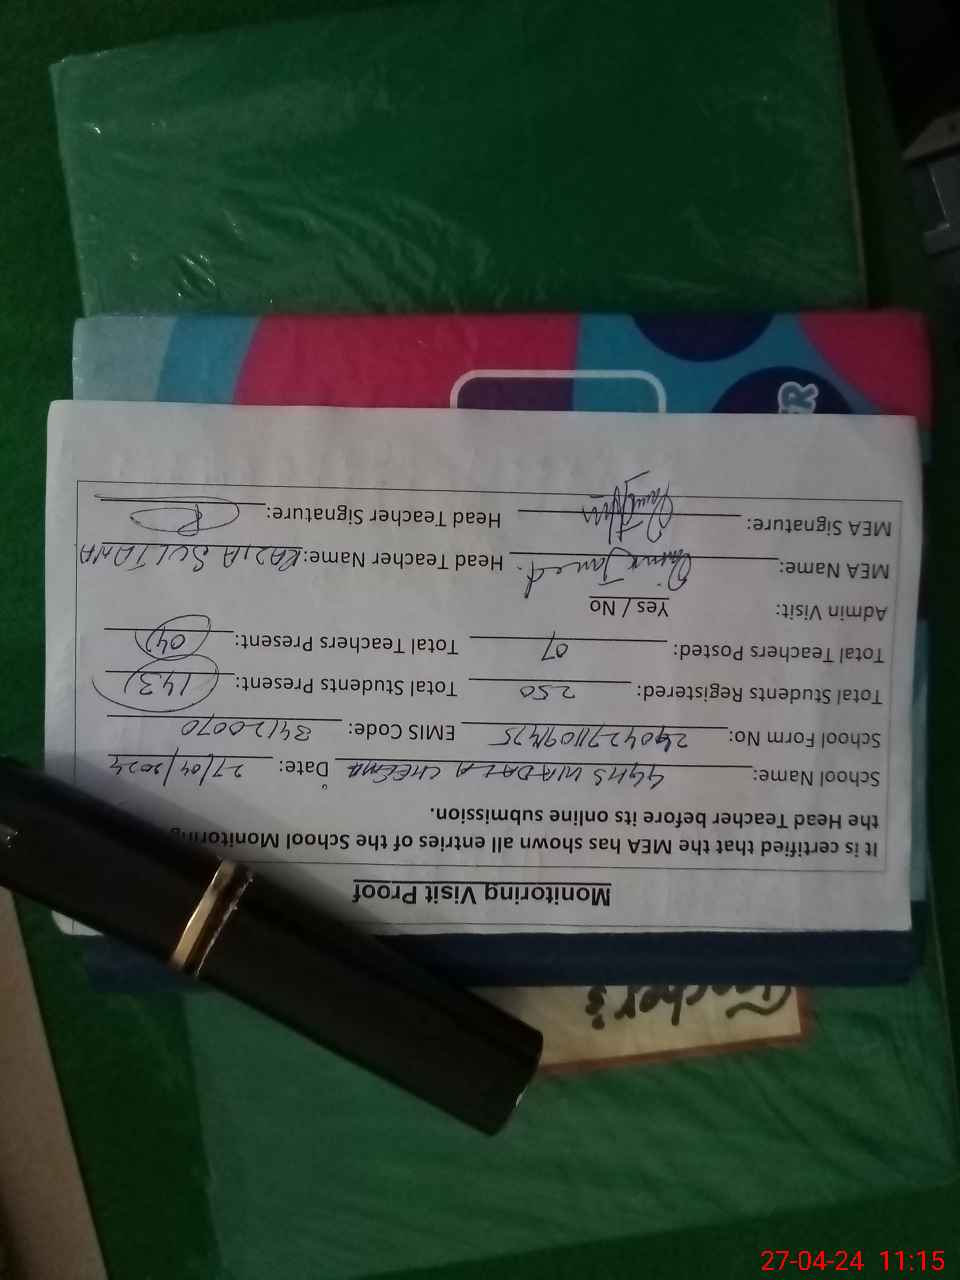 Monitoring Visit Proof
It is certified that the MEA has shown all entries of the School Monitoring
the Head Teacher before its online submission.
School Name: GGHS WADALA CHEEMA Date: 27/04/2024
School Form No: EMIS Code: 34120070
Total Students Registered: 250 Total Students Present: 143
Total Teachers Posted: 07 Total Teachers Present: 04
Admin Visit: Yes / No
MEA Name: Javed Head Teacher Name: RAZIA SULTANA
MEA Signature: Head Teacher Signature:
Teacher's
27-04-24 11:15